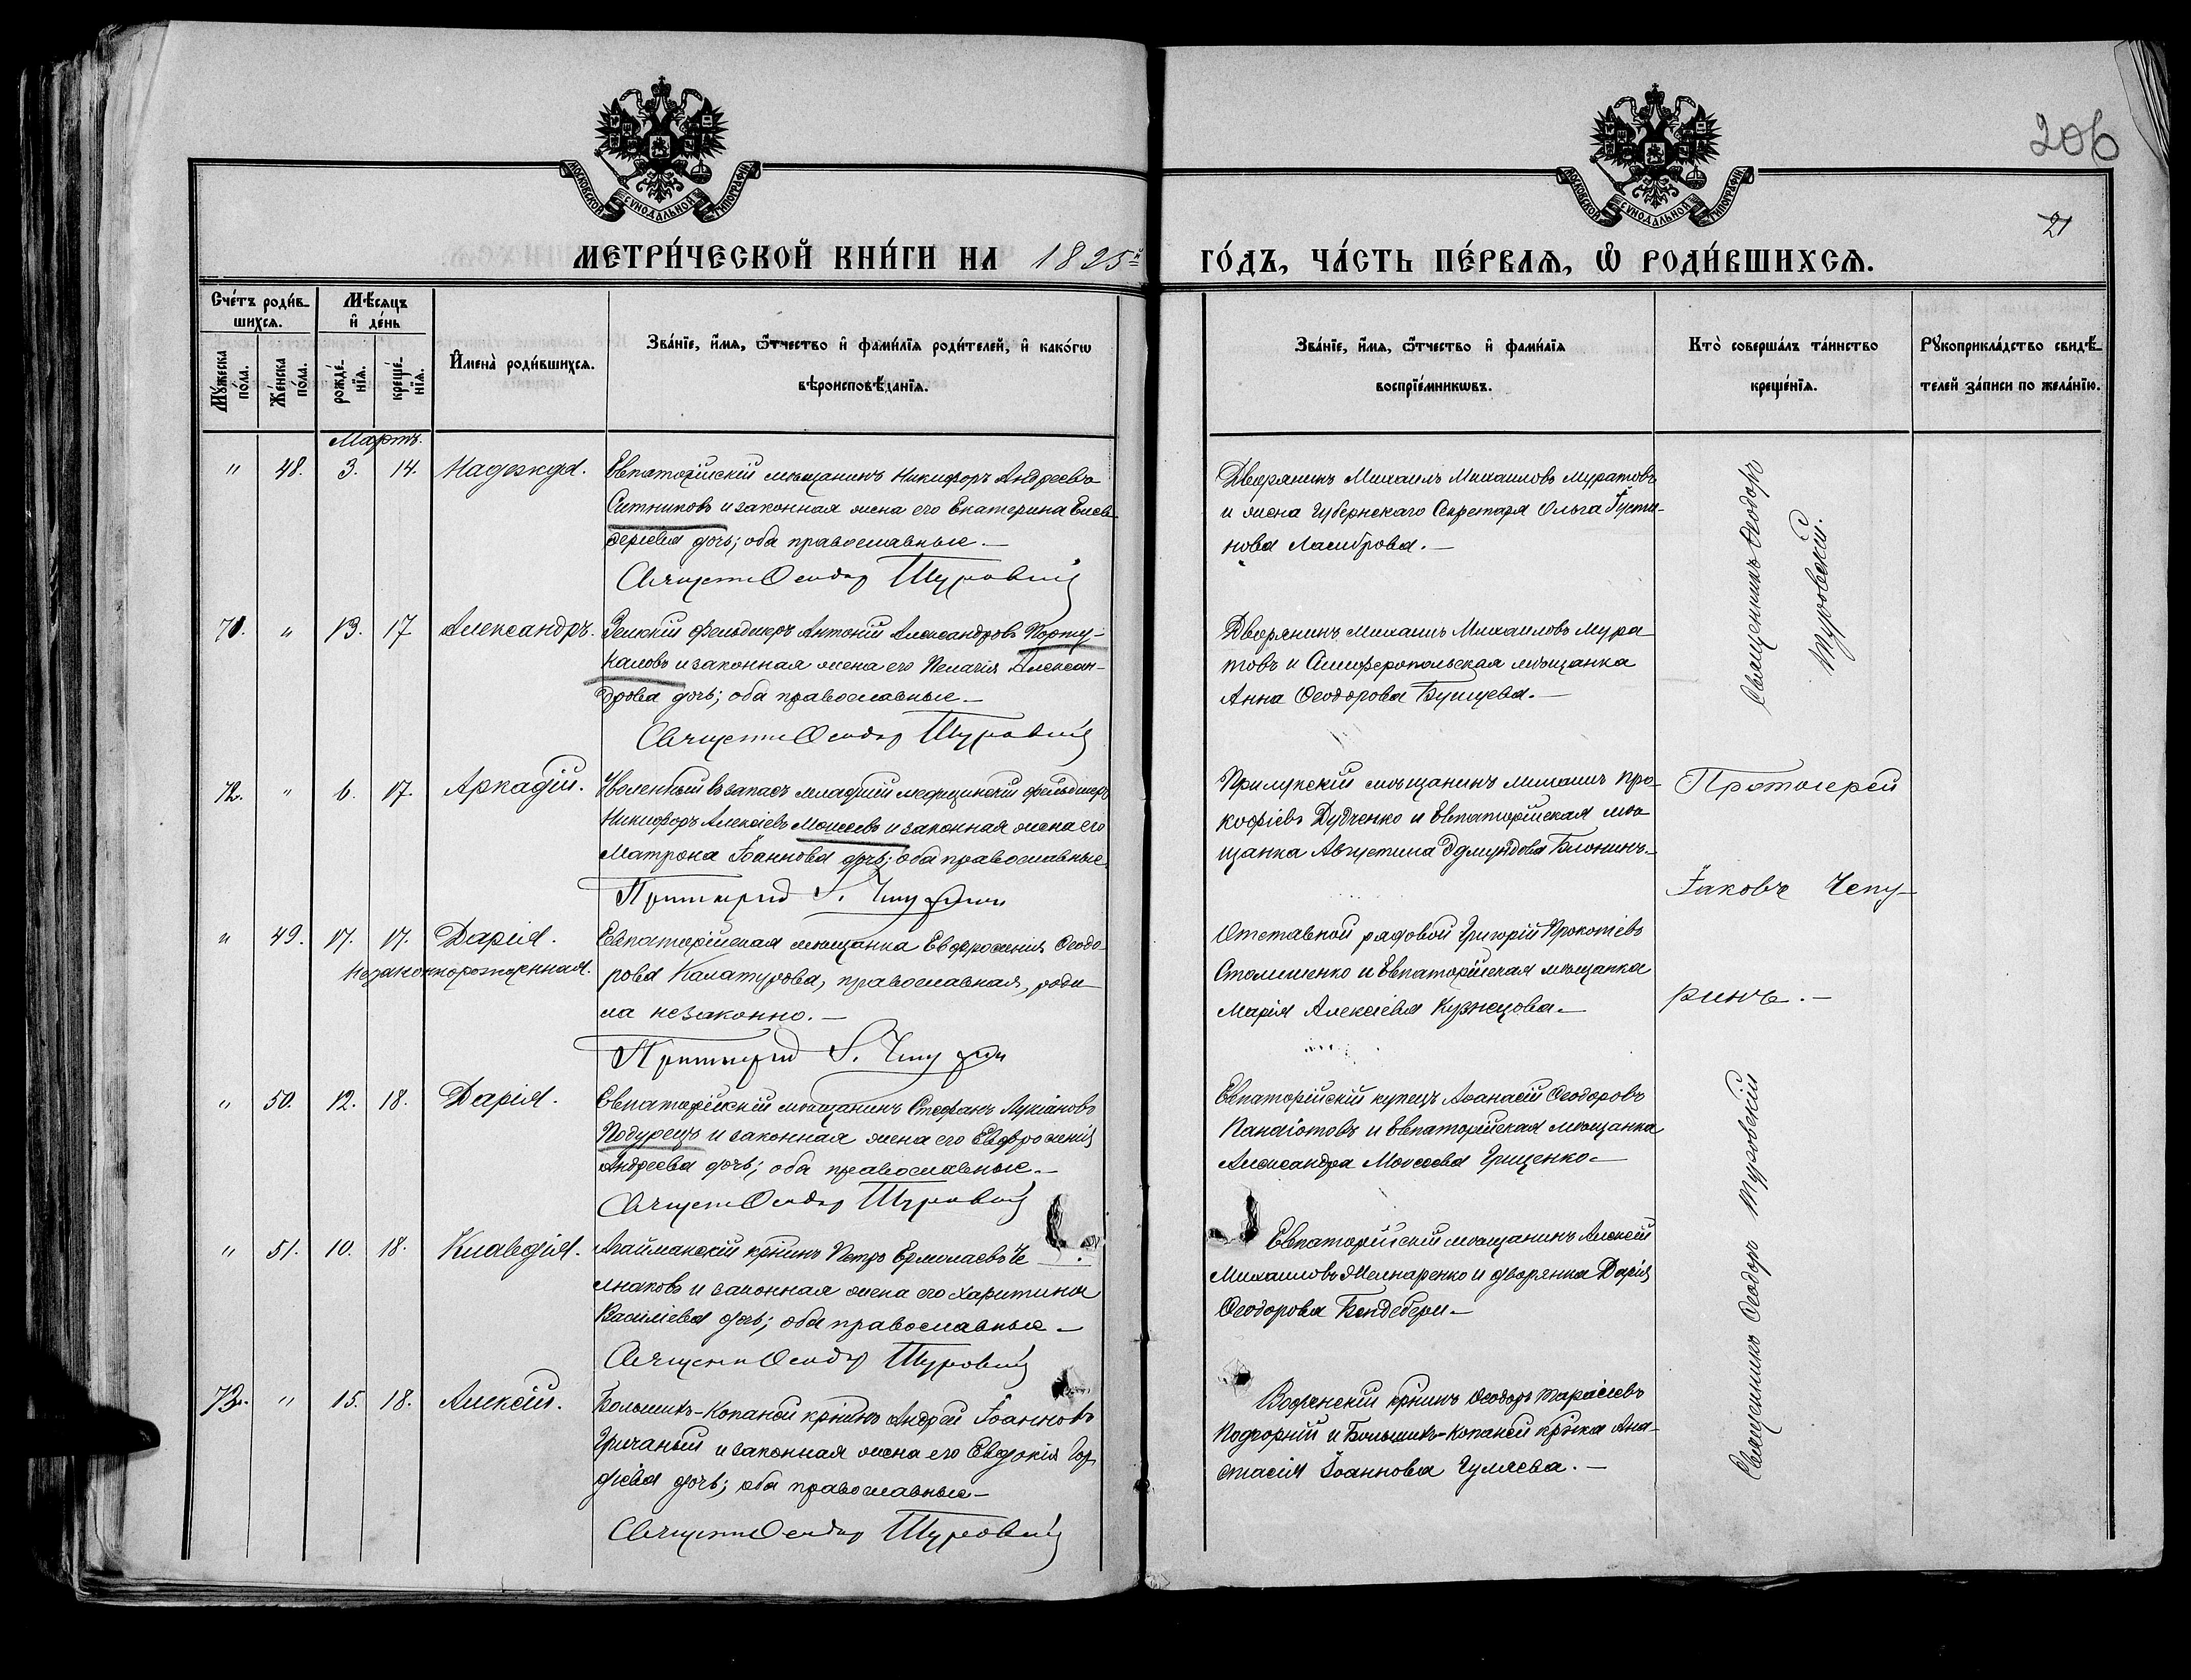 206
21
МОСКОВСКОЙ СѴНОДАЛЬНОЙ ТИПОГРАФІИ
МОСКОВСКОЙ СѴНОДАЛЬНОЙ ТИПОГРАФІИ
МЕТРИ́ЧЕСКОЙ КНИ́ГИ НА 1895й ГО́ДЪ, ЧА́СТЬ ПЕ́РВАЯ, Ѡ РОДИ́ВШИХСЯ.
Сче́тъ роди́в-
шихся.
Мѣ́сяцъ
и де́нь
Мꙋ́жеска по́ла.
Же́нска по́ла.
рожде́-
нїя.
креще́-
нїя.
И́мена̀ роди́вшихся.
Зва́нїе, и́мя, ѻ́тчество и фами́лїя роди́телей, и како́гѡ
вѣроисповѣ́данїя.
Зва́нїе, и́мя, ѻ́тчество и фами́лїя
воспрїе́мникѡвъ.
Кто̀ соверша́лъ та́инство
креще́нїя.
Рꙋкоприкла́дство свидѣ́-
телей за́писи по жела́нїю.
Мартъ.
" 48. 3. 14. Надежда.
Евпаторійскій мѣщанинъ Никифоръ Андреевъ
Ситниковъ и законная жена его Екатерина Елев-
ферiева дочь; оба православные.—
Священ Ѳеодор Туровскій
Дворянинъ Михаилъ Михаиловъ Муратовъ
и жена Губернскаго Секретаря Ольга Iусти-
нова
Священникъ Ѳеодоръ
Туровскій.
71. " 13. 17 Александръ.
Земскій фельдшеръ Антоній Александровъ Порту-
каловъ и законная жена его Пелагія Алексан-
дрова дочь; оба православные.—
Священ Ѳеодор Туровскій
Дворянинъ Михаилъ Михаиловъ Мура-
товъ и Симферопольская мѣщанка
Анна Ѳеодорова
72. " 6. 17. Аркадій.
Уволенный въ запасъ младшій медицинскій фельдшеръ
Никифоръ Алексіевъ Моисеевъ и законная жена его
Матрона Іоаннова дочь; оба православные.
Протоіерей І. Чепурин
Прилукскій мѣщанинъ Михаилъ Про-
кофіевъ Дудченко и Евпаторійская мѣ-
щанка Августина Эдмундова
Протоіерей
Іаковъ Чепу-
ринъ.—
" 49. 17. 17. Дарія.
Незаконнорожденная.
Евпаторійская мѣщанка Евфросинія Ѳеодо-
рова Калатурова, православная, роди-
ла незаконно.—
Протоіерей І. Чепурин
Отставной рядовой Григорій Прокопіевъ
и Евпаторійская мѣщанка
Марія Алексіева Кузнецова.—
" 50. 12. 18. Дарія.
Евпаторійскій мѣщанинъ Стефанъ Лукіановъ
Подурецъ и законная жена его Евфросинія
Андреева дочь; оба православные.—
Священ Ѳеодор Туровскій
Евпаторійскій купецъ Аѳанасій Ѳеодоровъ
Панаіотовъ и Евпаторійская мѣщанка
Александра Моисеева Грищенко.—
Священникъ Ѳеодоръ Туровскій
" 51. 10. 18. Клавдія.
Агайманскій крнинъ Петръ Ермолаевъ Че-
лнаковъ и законная жена его Харитина
Василіева дочь; оба православные.—
Священ Ѳеодор Туровскій
Евпаторійскій мѣщанинъ Алексій
Михаиловъ и дворянка Дарія
Ѳеодорова Бендебери.—
73. " 15. 18. Алексій.
Большихъ-Копаной крнинъ Андрей Іоанновъ
Гричаный и законная жена его Евдокія Гор-
діева дочь; оба православные.—
Священ Ѳеодор Туровскій
крнинъ Ѳеодоръ Тарасіевъ
Подгорный и Большихъ-Копаней крнка Ана-
стасія Іоаннова Гуляева.—